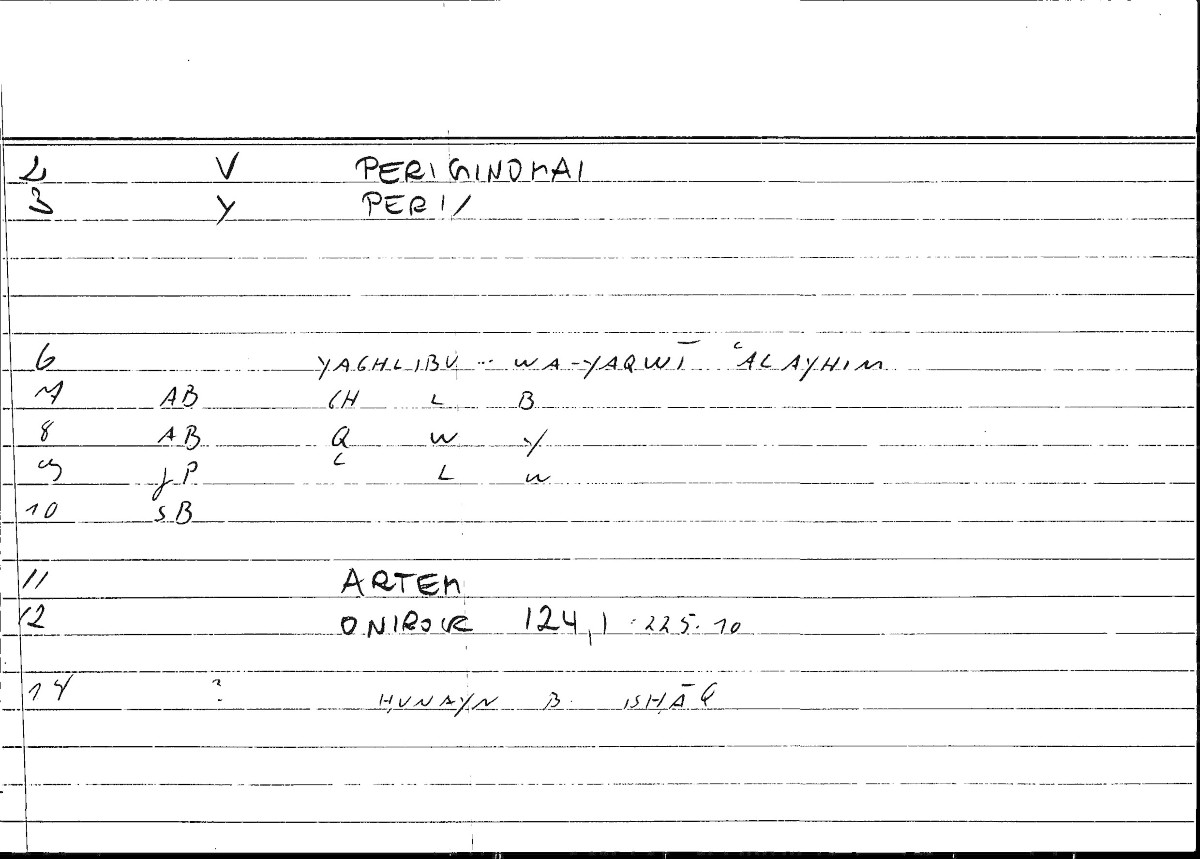 2 V PERIGINOMAI
3 Y PERI/
6 YAGHLIBU .. WA-YAQWĪ ʿALAYHIM
7 AB GH L B
8 AB Q W Y
9 JP ʿ L W
10 SB
11 ARTEM
12 ONIROCR 124,1 · 225.10
14 ? ḤUNAYN B. ISḤĀQ